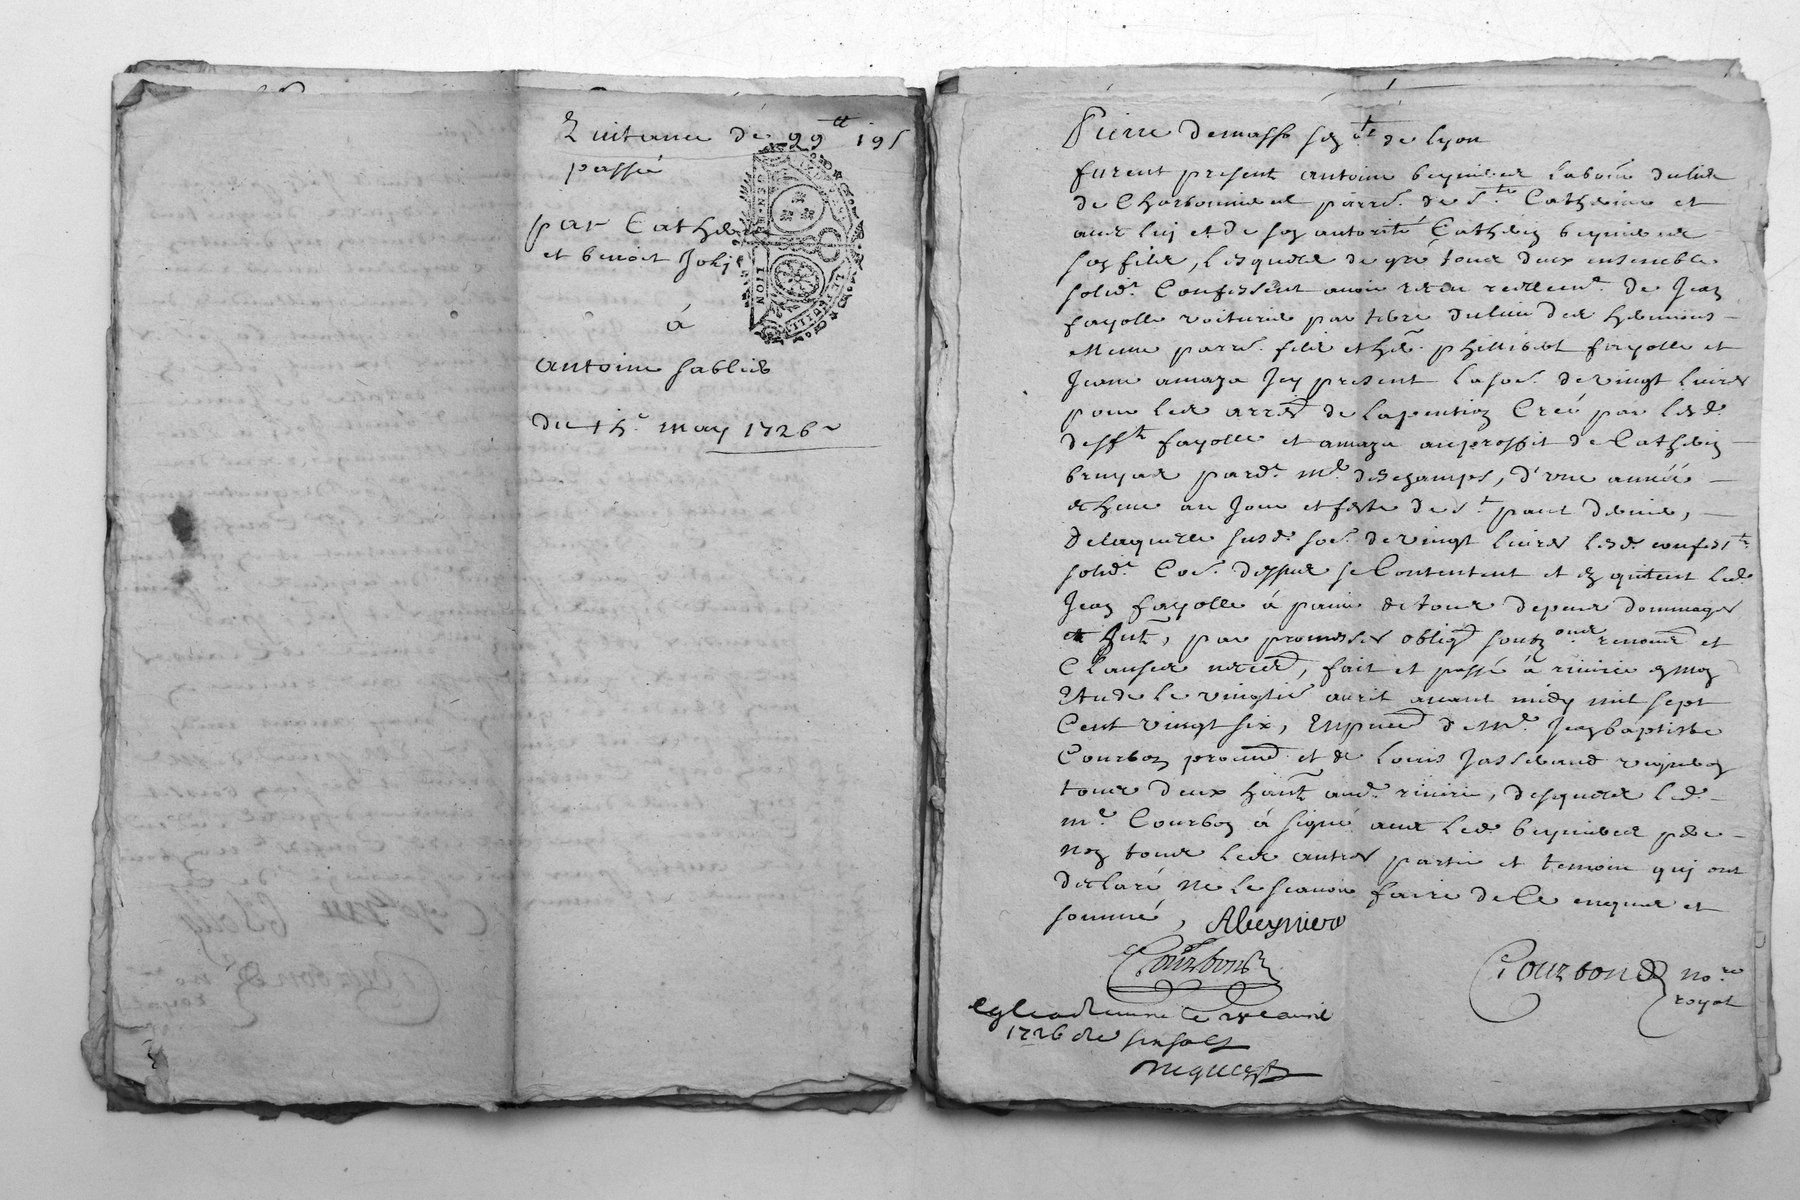 Quittance de 99tt 19s
passée
par Catherine
et benoit Joly
GEN·R
LION
à
antoine sablier
du 15e may 1726
Pierre demasso sgr de lyon
furent present antoine beynieur du lieu
de Charbonnieul parre. de Ste. Catherine et
avec luy et de son autorité Catherin beynieur
son fils, lesquels de gré tous deux ensemble
solidt. Confessent avoir receu reellemt. de Jean
fayolle voiturier par terre du lieu des
mesme parre. fils et her. phillibert fayolle et
Jeane amaza Jcy present la soe. de vingt livres
pour les arres de la pention Creé par lesd.
deffts fayolle et amaza au proffit de Catherin
pard. me. deschamps, d'une année
echeue au Jour et feste de st. paul dernier,
de laquelle susd. soe. de vingt livres lesd. confessts
solidt. Coe. dessus se Contentent et en quitent led.
Jean fayolle à paine de tous depens dommages
et Intz, par promesses obligons soubzons renones et
Clauses necres, fait et passé à rivirie en mon
Etude le vingtie avril avant midy mil sept
Cent vingt six, En pnce de Me. Jean baptiste
Courbon procur et de Louis Jasseraud vigneron
tous deux hants aud. rivirie, desquels led.
me. Courbon à signé avec led. beynieur pere
non tous les autres partie et temoin qui ont
declaré ne le scavoir faire de Ce enquis et
sommé,
ABeynieu
Courbon
Courbon nore
royal
Controllé le avril
1726 six sols